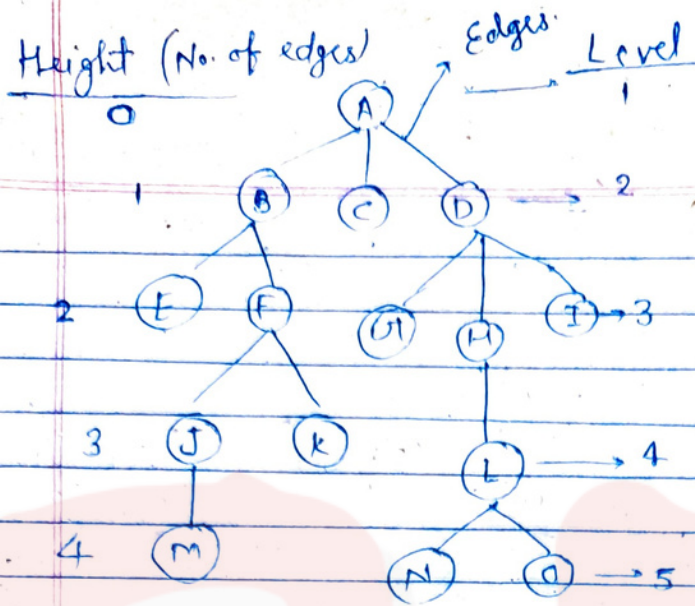 Height (No. of edges) Edges. Level
0 A 1
1 B C D 2
2 E F G H I 3
3 J K L 4
4 M N O 5